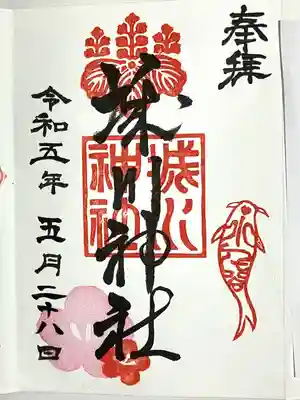 奉拝
川神社
神社
令和五年 五月二十八日